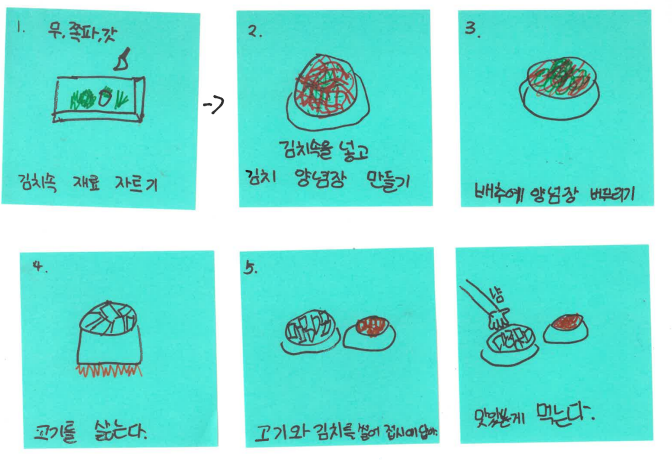 1. 무,쪽파,갓
김치속 재료 자르기
→
2.
김치속을 넣고
김치 양념장 만들기
3.
배추에 양념장 버무리기
4.
고기를 삶는다.
5.
고기와 김치를 썰어 접시에 담아.
냠
맛있는게 먹는다.